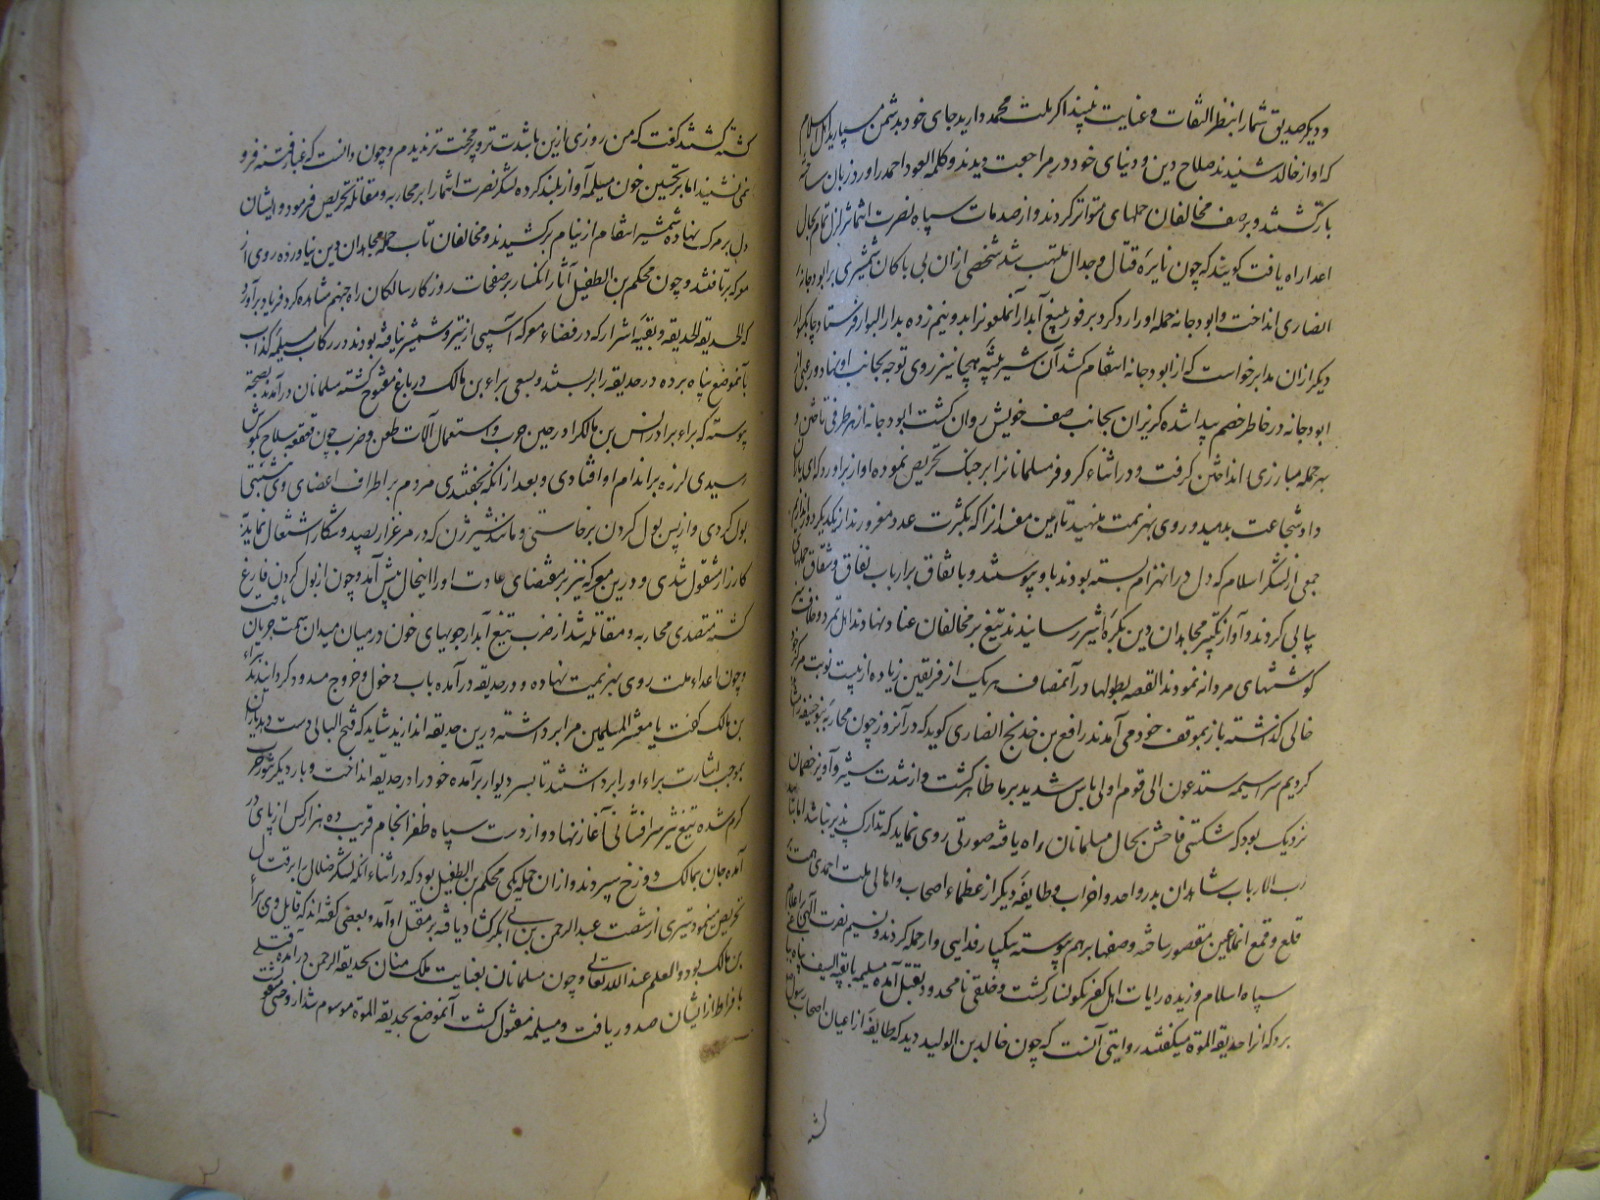 و دیکر صدیق شمارا بنظر التفات و عنایت نه‌بیند اکر ملت محمد دارید جای خود بدشمن مسپارید اهل اسلام
که اواز خالد شنیدند صلاح دین و دنیای خود در مراجعت دیدند و کلمه العود احمد را ورد زبان ساخته
باز کشتند و بر صف مخالفان حملهای متواتر کردند و از صدمات سپاه نصرت انتما تزلزل تمام بحال
اعدا راه یافت کویند که چون نایرهٔ قتال و جدال ملتهب شد شخصی ازان بی باکان شمشیری بر ابو دجانهٔ
انصاری انداخت و ابو دجانه حمله اورا رد کرد بر فور بتیغ آبدار آنملعونرا بدو نیم زده بدار البوار فرستاد
دیکر ازان مدابر خواست که از ابو دجانه انتقام کشد آن شیر بیشهٔ هیجا نیز روی توجه بجانب او نهاد و رعبی از
ابو دجانه در خاطر خصم پیدا شده کریزان بجانب صف خویش روان کشت ابو دجانه از هر طرفی تاختن و
بهر حمله مبارزی انداختن کرفت و در اثناء کر و فر مسلمانانرا بر جنک تحریص نموده اواز براورد که ای یاران
داد شجاعت بدهید و روی بهزیمت منهید تا این مفسدانرا که بکثرت عدد مغرورند از یکدیکر دور اندازیم
جمعی از لشکر اسلام که دل در انهزام بسته بودند باو پیوستند و باتفاق بر ارباب نفاق و شقاق حملهای
پیاپی کردند و آواز تکبیر مجاهدان دین بکرهٔ اثیر رسانیدند تیغ بر مخالفان عناد نهادند اهل تمرد و خلاف نیز
کوششهای مردانه نمودند القصه بطولها در آنمصاف هر یک از فریقین زیاده از بیست نوبت مرکز خود
خالی کذاشته باز بموقف خود می آمدند رافع بن خدیج انصاری کوید که در آنروز چون محاربه بنو حنیفه
کردیم سر اسیمه ستدعون الی قوم اولی باس شدید بر ما ظاهر کشت و از شدت ستیز و آویز خصمان
نزدیک بود که شکستی فاحش بحال مسلمانان راه یافته صورتی روی نماید که تدارک پذیر نباشد اما بتائید
رب الارباب شاهدان بدر و احد و احزاب و طایفهٔ دیکر از عظماء اصحاب و اهالی ملت احمدی همت بر
قلع و قمع انملاعین مقصور ساخته و صفها بر هم پیوسته بیکبار فدایی وار حمله کردند و نسیم نصرت آلهی بر اعلام
سپاه اسلام وزیده رایات اهل کفر نکونسار کشت و خلقی نامحدود بقتل آمده مسیلمه با بقیه السیف پناه بباغی
برد که انرا حدیقه الموت میکفتند روایتی آنست که چون خالد بن الولید دید که طایفهٔ از اعیان اصحاب رسول
کشته
کشته کشتند کفت که من روزی ازین باشدت‌تر و پرمحنت‌تر ندیدم و چون دانست که غبار فتنه فرو
نمی نشیند اما بریختن خون مسیلمه آواز بلند کرده لشکر نصرت انتما را بر محاربه و مقاتله تحریص فرمود و ایشان
دل بر مرک نهاده شمشیر انتقام از نیام بر کشیدند و مخالفان تاب حمله مجاهدان دین نیاورده روی از
معرکه برتافتند و چون محکم بن الطفیل آثار انکسار بر صفحات روزکار سالکان راه جهنم مشاهده کرد فریاد برآورد
که الحدیقه الحدیقه و بقیهٔ اشرار که در فضاء معرکه آسیبی از تیر و شمشیر نیافته بودند در رکاب مسیلمه کذاب
بآنموضع پناه برده در حدیقه را بر بستند و بسعی براء بن مالک در باغ مفتوح کشته مسلمانان در آمدند بصحت
پیوسته که براء برادر انس بن مالک را در حین حرب و استعمال آلات طعن و ضرب چون قعقعه سلاح بکوش
رسیدی لرزه بر اندام او افتادی و بعد از انکه بخفتیدی مردم بر اطراف اعضای وی نشستی تا
بول کردی و از پس بول کردن برخاستی و مانند شیر ژن که در مرغزار بصید و شکار اشتغال نماید
کارزار مشغول شدی و درین معرکه نیز بر مقتضای عادت او را اینحال پیش آمد و چون از بول کردن فارغ
کشته متصدی محاربه و مقاتله شد از ضرب تیغ آبدار جویهای خون در میان میدان سمت جریان یافت
و چون اعداء ملت روی بهزیمت نهاده و در حدیقه درآمده باب دخول و خروج مسدود کردانیدند براء
بن مالک کفت یا معشر المسلمین مرا برداشته درین حدیقه اندازید شاید که فتح البابی دست دهد یاران
بموجب اشارت براء اورا برداشتند تا بسر دیوار برآمده خود را در حدیقه انداخت و بار دیکر تنور حرب
کرم شده تیغ تیز سر افشانی آغاز نهاد و از دست سپاه ظفر انجام قریب ده هزار کس از پای در
آمده جان بمالک دوزخ سپردند و ازان جمله یکی محکم بن الطفیل بود که در اثناء انکه لشکر ضلال را بر قتال
تحریص مینمود تیری از شصت عبد الرحمن بن ابی بکر کشاد یافته بر مقتل او آمد و بعضی کفته‌اند که قاتل وی براء
بن مالک بود و العلم عند الله تعالی و چون مسلمانان بعنایت ملک منان بحدیقه الرحمن درآمده قتلی
بافراط از ایشان صدور یافت و مسیلمه مقتول کشت آنموضع بحدیقه الموت موسوم شد از وحشی